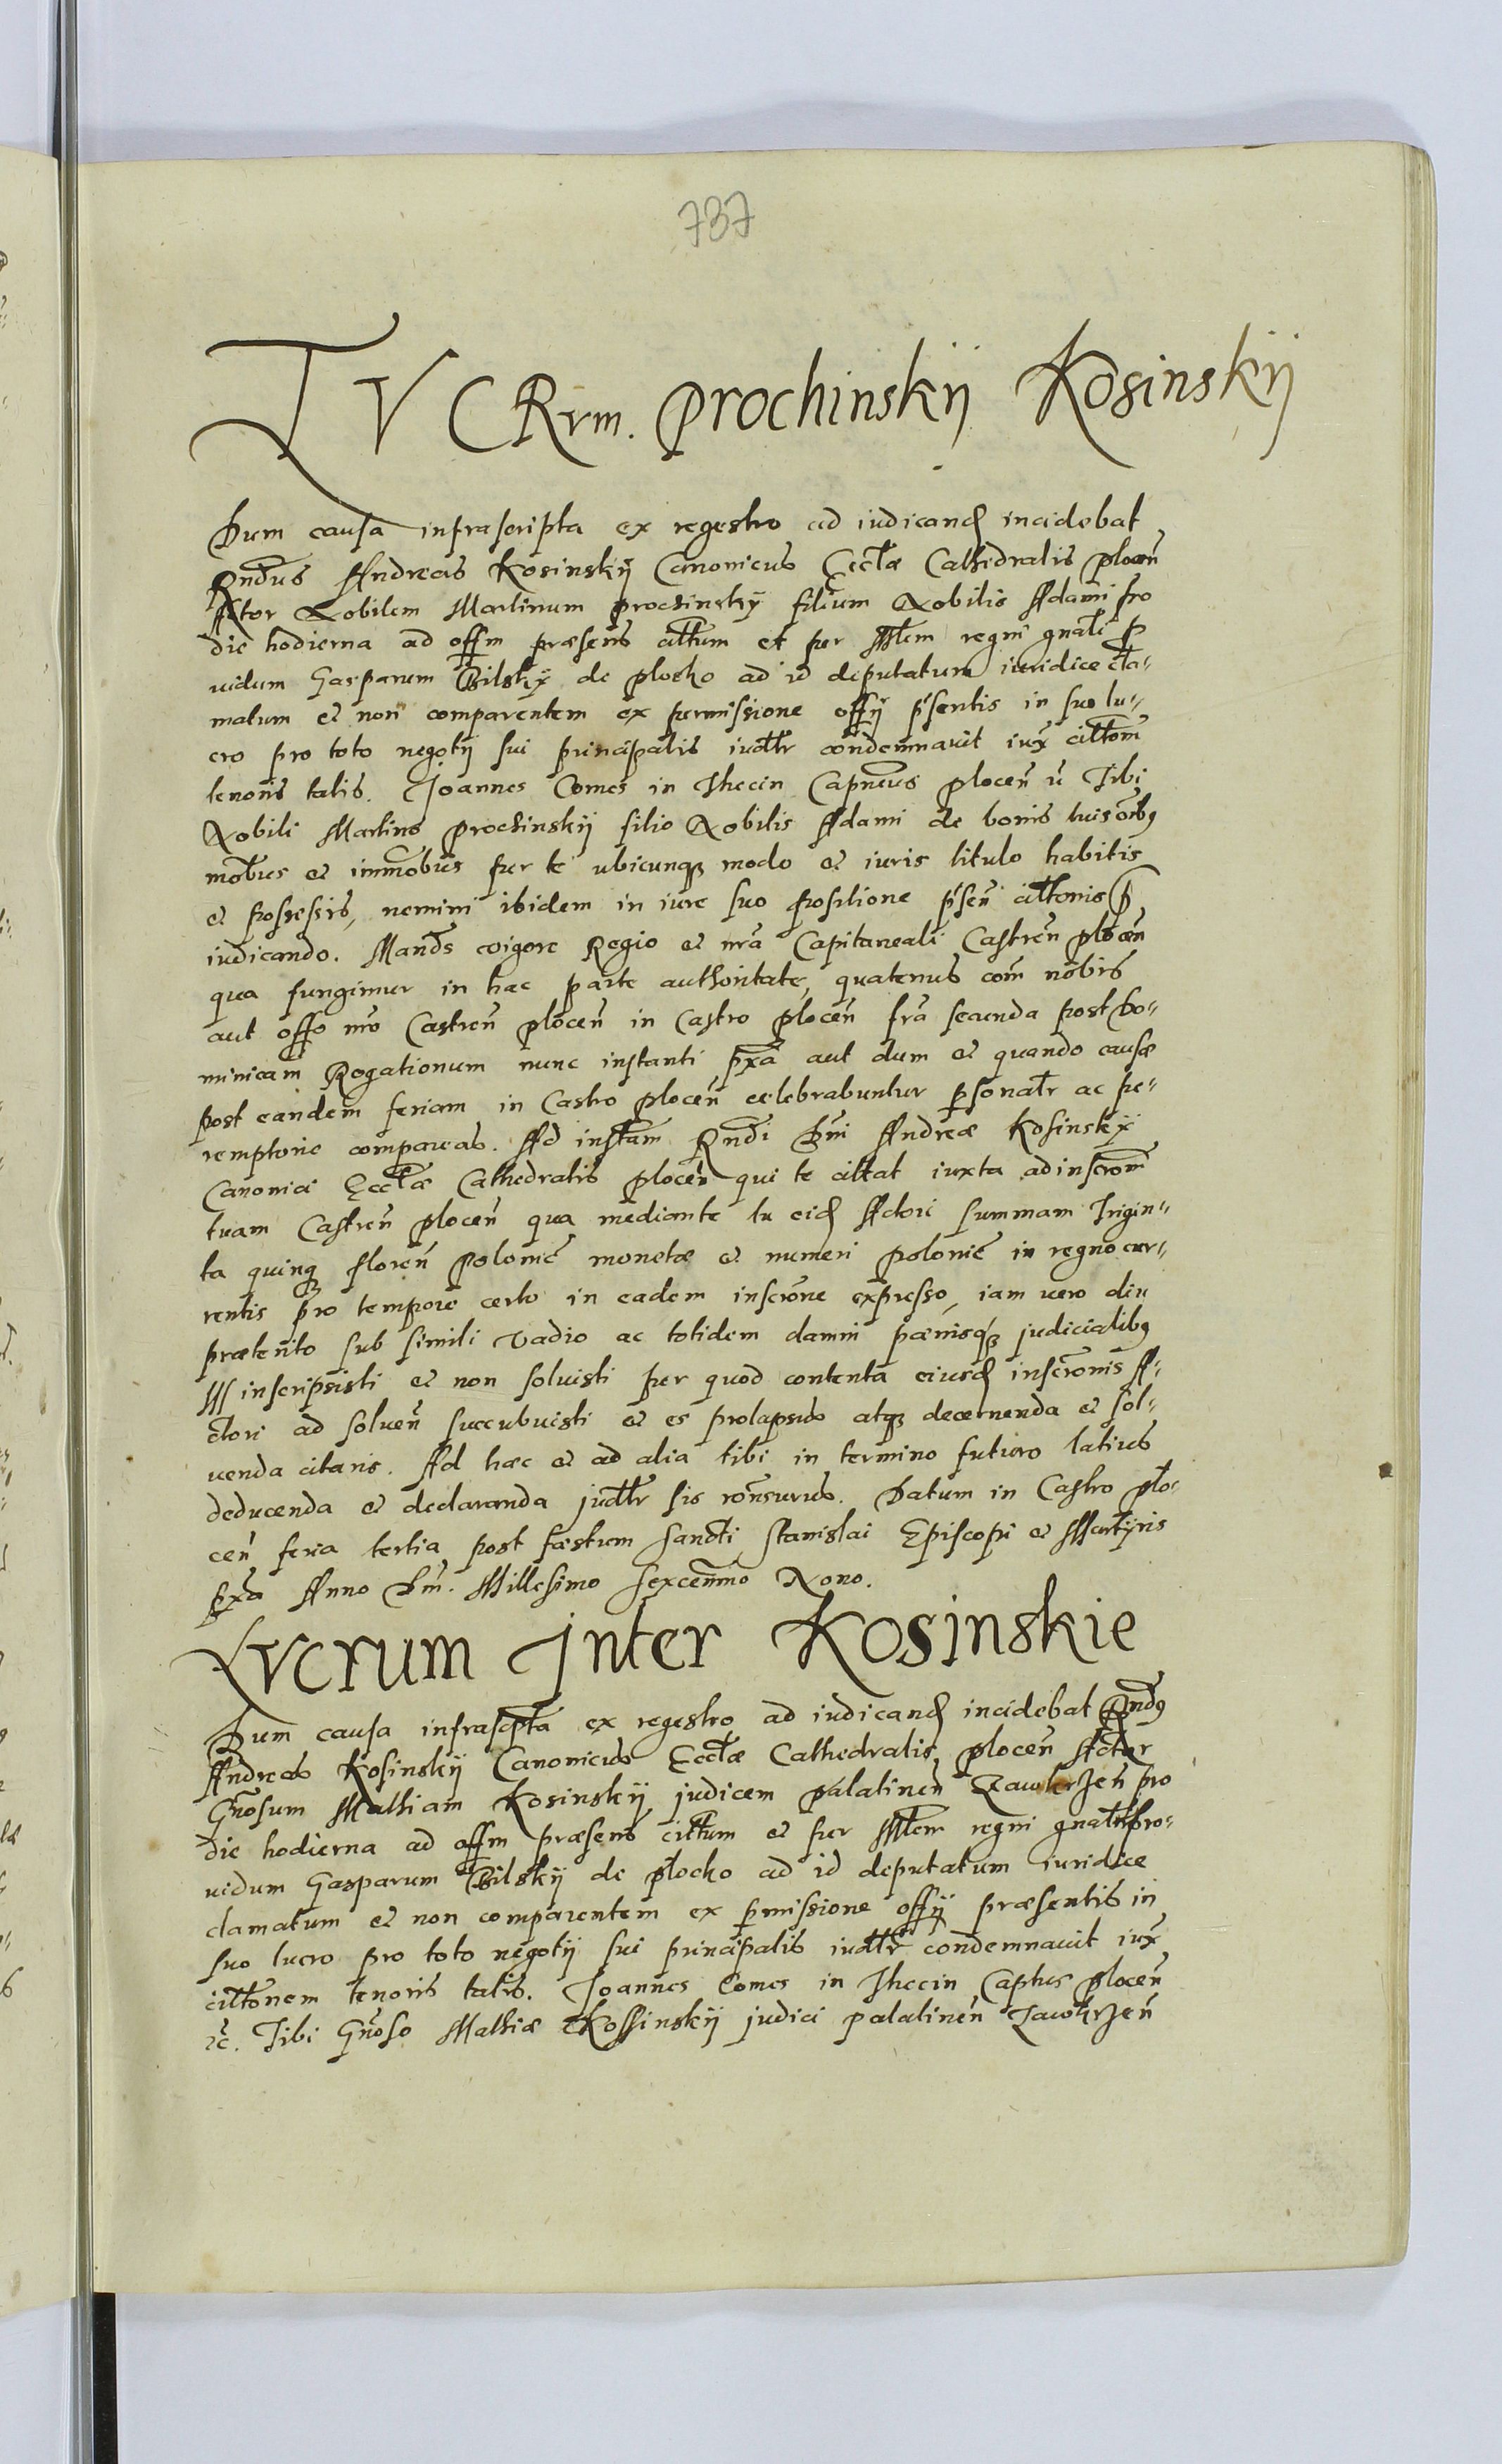 737
LVCRVm. Prochinskÿ Kosinskÿ
Dum causa infrascripta ex regestro ad iudicand incidebat
Rndus Andreas Kosinskÿ Canonicus Eccłæ Cathedralis plocen̄
Actor Nobilem Martinum prochinskÿ filium Nobilis Adami pro
die hodierna ad offm præsens cittum et per Młem regni gnałe p
uidum Gasparum Bilskÿ de plocko ad id deputatum iuridice cla-
matum et non comparentem ex permissione offÿ pśentis in suo lu-
cro pro toto negotÿ sui principalis iudłr condemnauit iux cittom
tenoris talis. Joannes Comes in Thecin Capneus plocen̄ rc̄ Tibi
Nobili Martino prochinskÿ filio Nobilis Adami de bonis tuis omb9
mobus et immobus per te ubicunq3 modo et iuris titulo habitis
et possessis, nemini ibidem in iure suo positione pśen cittonis p
iudicando. Mands vigore Regio et nra Capitaneali Castren̄ plocen̄
qua fungimur in hac parte authoritate, quatenus com nobis
aut offo nro Castren̄ plocen̄ in Castro plocen̄ fra secunda post Do-
minicam Rogationum nunc instanti pxa aut dum et quando causæ
post eandem feriam in Castro plocen̄ celebrabuntur psonałr ac pe-
remptorie compareas. Ad instam Rndi Dni Andreæ Kosinskÿ
Canonici Eccłæ Cathedralis plocen̄ qui te cittat iuxta ad inscrom
tuam Castren̄ plocen̄ qua mediante tu eid Actori summam Trigin-
ta quinq3 floren̄ Polonic monetæ et numeri polonic in regno cur-
rentis pro tempore certo in eadem inscrone expresso, iam uero diu
prætento sub simili vadio ac totidem damni pænisq3 judicialib9
inscripsisti et non soluisti per quod contenta eiusd inscronis A-
ctori ad soluen̄ succubuisti et es prolapsus atq3 decernenda et sol-
uenda citaris. Ad hæc et ad alia tibi in termino futuro latius
deducenda et declaranda judłr sis ronsurus. Datum in Castro plo-
cen̄ feria tertia post fæstum sancti Stanislai Episcopi et Martÿris
pxa Anno Dni. Millesimo sexcenmo Nono.
Lvcrum Jnter Kosjnskie
Dum causa infrascpta ex regestro ad iudicand incidebat Rnd9
Andreas Kosinskÿ Canonicus Eccłæ Cathedralis plocen̄ Actor
Gnosum Mathiam Kosinskÿ judicem palatinen̄ Zawkrzen̄ pro
die hodierna ad offm præsens cittum et per Młem regni gnałe pro-
uidum Gasparum Bilskÿ de plocko ad id deputatum iuridice
clamatum et non comparentem ex pmissione offÿ præsentis in
suo lucro pro toto negotÿ sui principalis iudłr condemnauit iux
cittonem tenoris talis. Joannes Comes in Thecin Captus plocen̄
rc̄. Tibi Gnoso Mathiæ Kossinskÿ judici palatinen̄ Zawkrzen̄